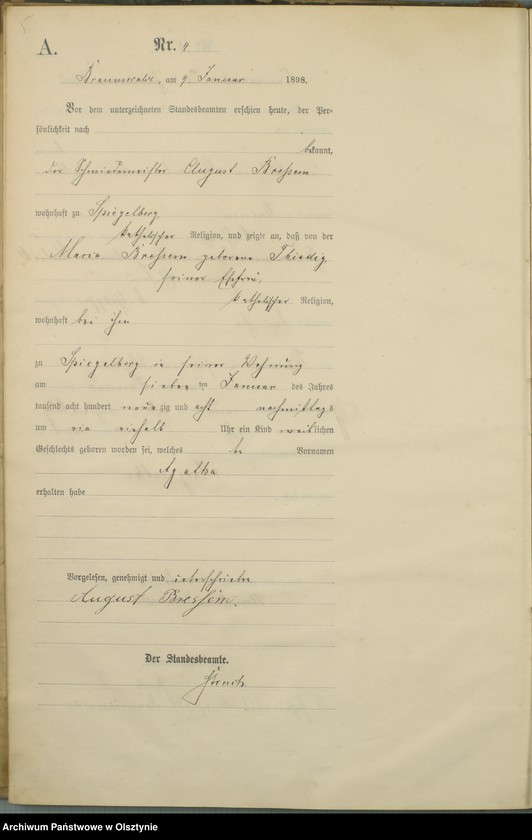 A.
Nr. 4
Braunswalde, am 9. Januar 1898.
Vor dem unterzeichneten Standesbeamten erschien heute, der Per-
sönlichkeit nach
bekannt,
der Schmiedemeister August Bressem
wohnhaft zu Spiegelberg,
katholischer Religion, und zeigte an, daß von der
Maria Bressem geborene Thiedig,
seiner Ehefrau,
katholischer Religion,
wohnhaft bei ihm
zu Spiegelberg in seiner Wohnung
am sieben ten Januar des Jahres
tausend acht hundert neun zig und acht nachmittags
um ein einhalb Uhr ein Kind weiblichen
Geschlechts geboren worden sei, welches Vornamen
Agatha
erhalten habe
Vorgelesen, genehmigt und unterschrieben
August Bressem.
Der Standesbeamte.
Archiwum Państwowe w Olsztynie